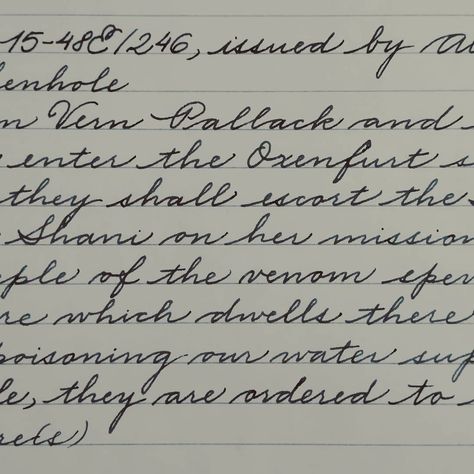 15-48E/246, issued by
enhole
Vern Pallack and
enter the Oxenfurt s
they shall escort the
Shani on her mission
ple of the venom sper
re which dwells there
poisoning our water sup
le, they are ordered to
re(s)